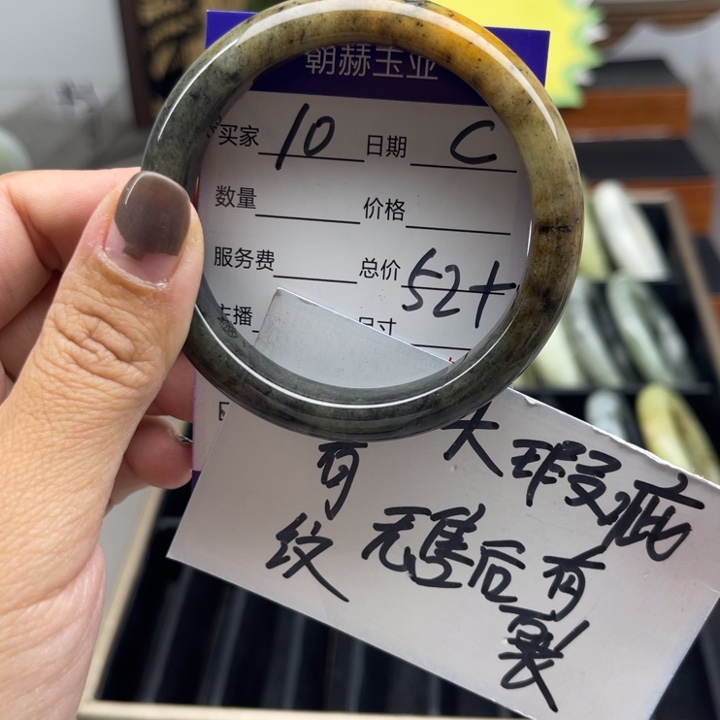 朝赫玉业
买家 10 日期 C
数量 价格
服务费 总价 52+
主播 尺寸
有 大瑕疵
纹 无售后有
裂